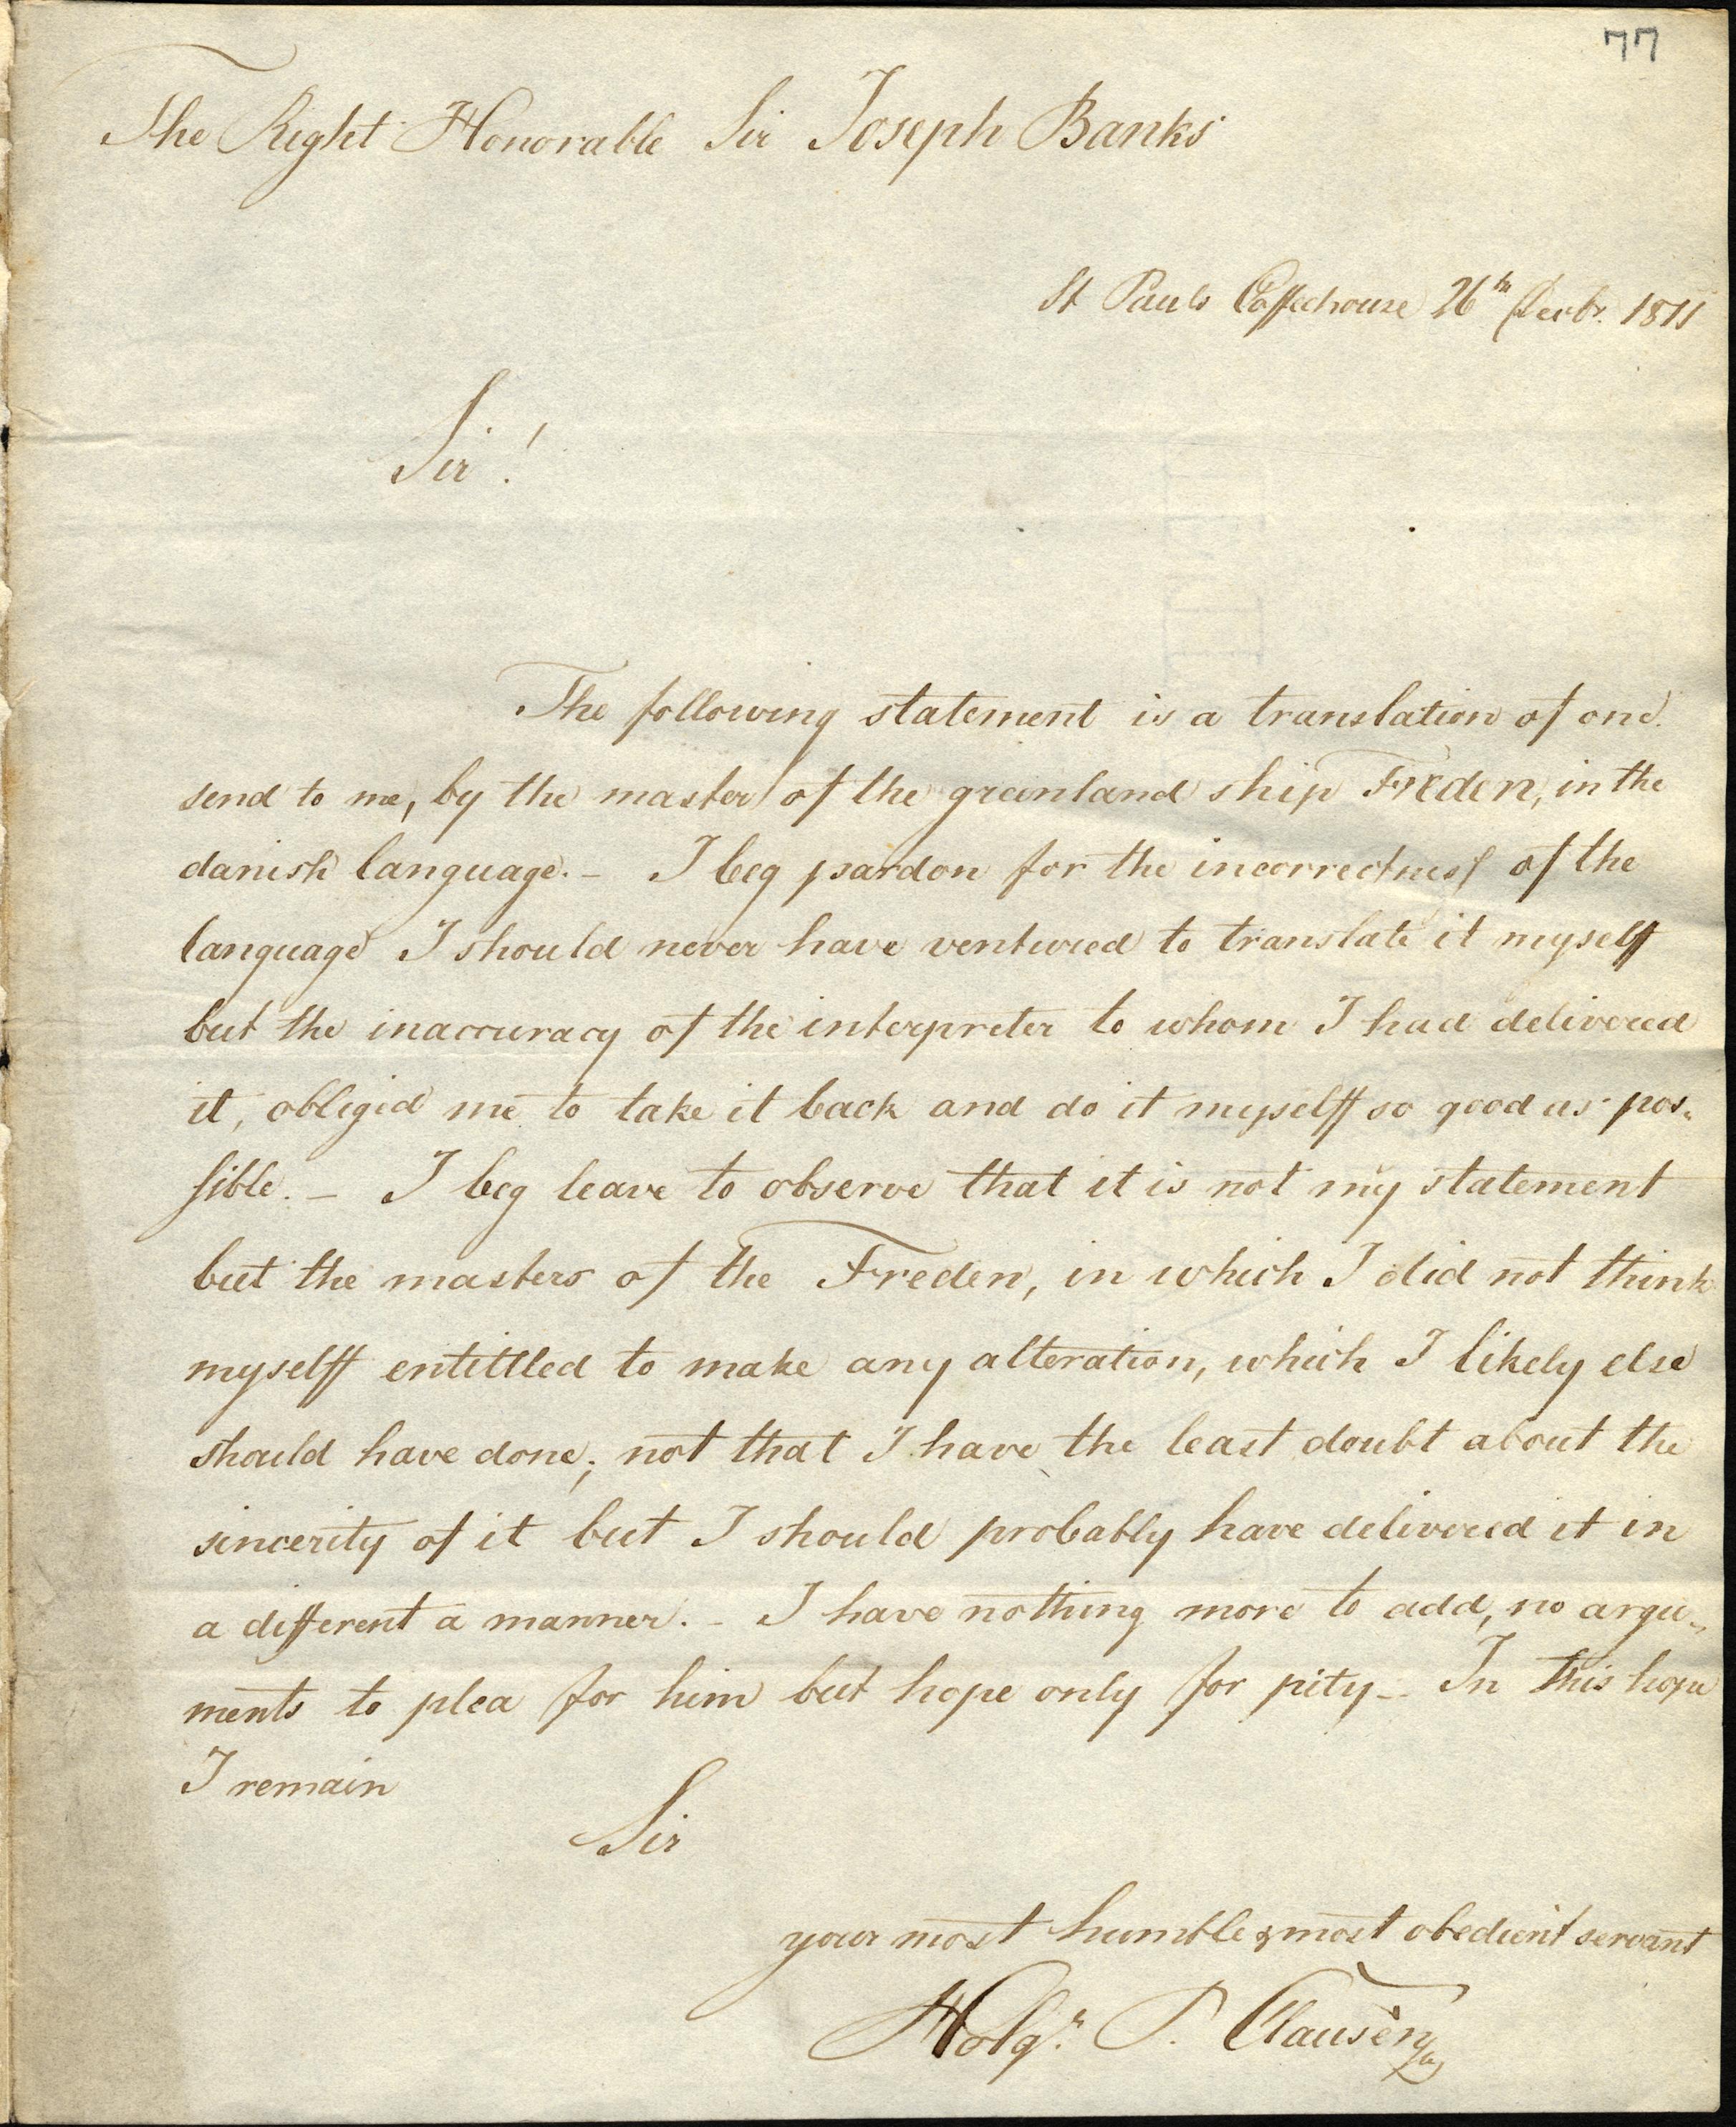 77
The Right Honorable Sir Joseph Banks
St Pauls Coffeehouse 26th Decbr. 1811
Sir!
The following statement is a translation of one
send to me, by the master of the greenland ship Freden, in the
danish language. - I beg pardon for the incorrectness of the
language I should never have ventured to translate it myselff
but the inaccuracy of the interpreter to whom I had delivered
it, obliged me to take it back and do it myselff so good as pos-
sible. - I beg leave to observe that it is not my statement
but the masters of the Freden, in which I did not think
myselff entittled to make any alteration, which I likely else
should have done; not that I have the least doubt about the
sincerity of it but I should probably have delivered it in
a different a manner. - I have nothing more to add, no argu-
ments to plea for him but hope only for pity - In this hope
I remain
Sir
your most humble & most obedient servant
Holgr. P. Clausen